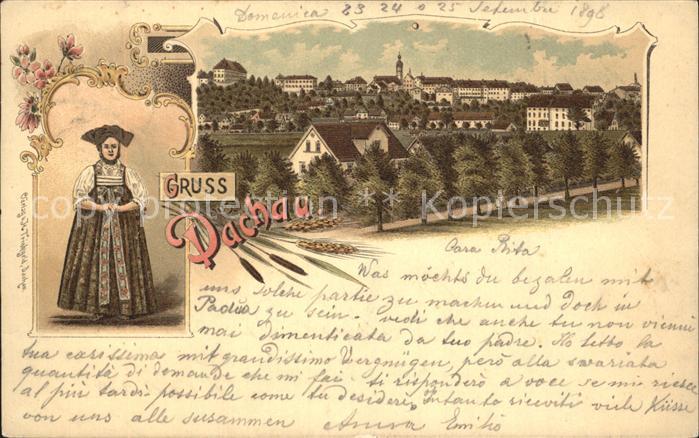 Domenica 23 24 o 25 Setembre 1898
GRUSS
Dachau
Cara Rita
Was möchts du bezalen mit
uns solche partie zu machen und doch in
Padua zu sein. vedi che anche tu non vienni
mai dimenticata da tuo padre. Ho letto la
tua carissima mit grandissimo Vergnügen, però alla svariata
quantità di domande che mi fai ti risponderò a voce se mi riesce
al più tardi possibile come tu desideri, Intanto ricevi viele Küsse
von uns alle susammen Emilio